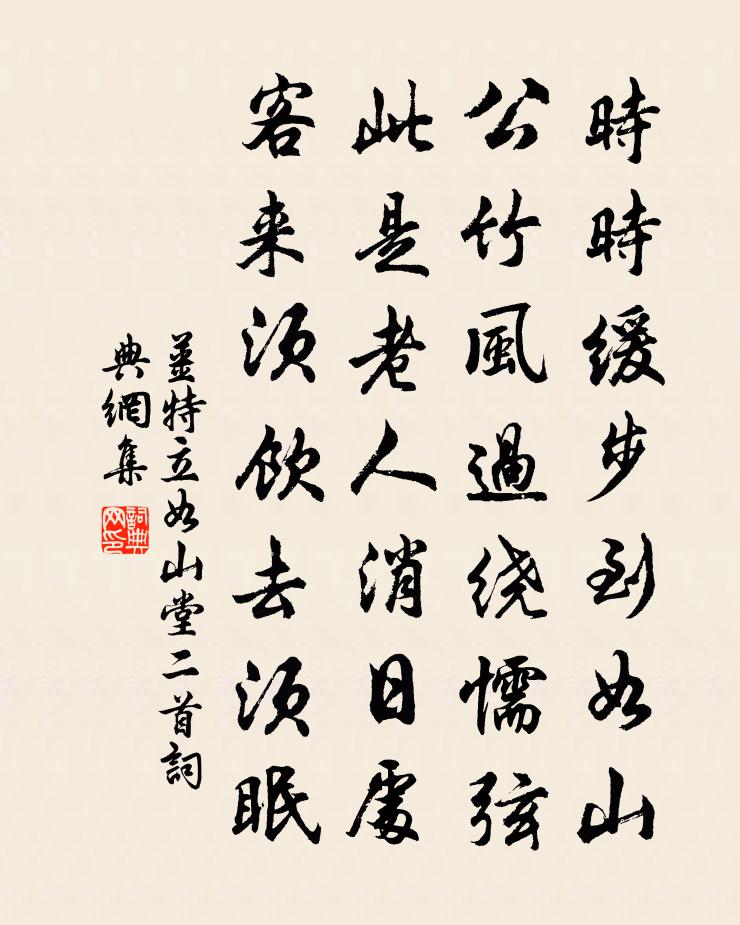 時時缓步到如山
公竹風過绕懦弦
此是老人消日處
客来须飲去须眠
姜特立如山堂二首詞
典網集
詞典网印